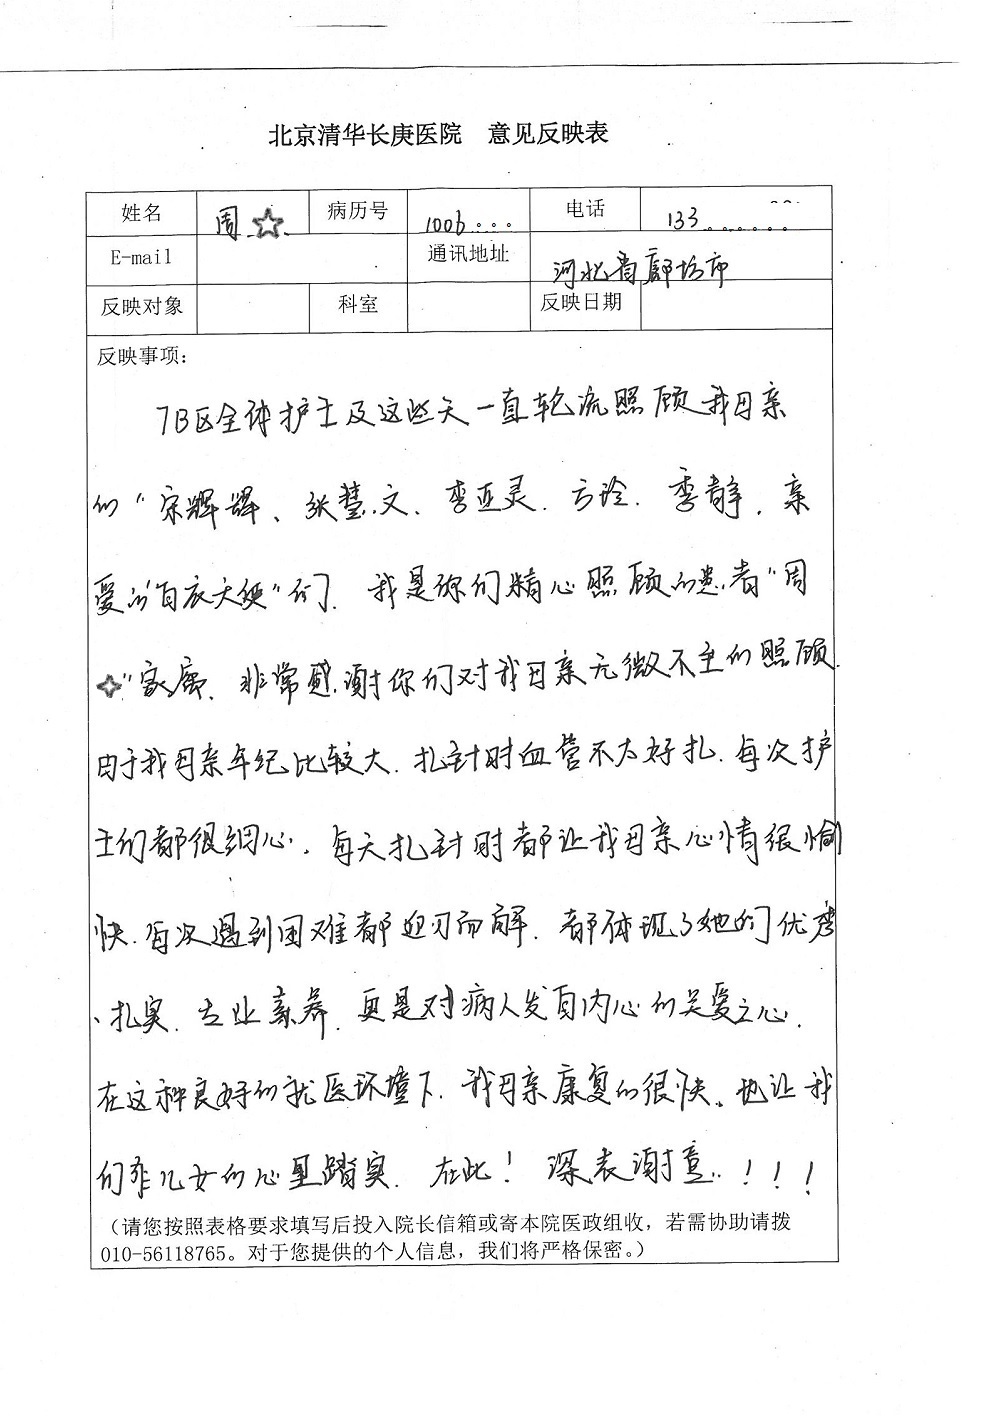 北京清华长庚医院 意见反映表
姓名 周☆ 病历号 1006... 电话 133......
E-mail 通讯地址 河北省廊坊市
反映对象 科室 反映日期
反映事项:
7B区全体护士及这些天一直轮流照顾我母亲
的“宋辉辉、张慧文、李亚灵、方玲、季静,亲
爱的“白衣天使”们、我是你们精心照顾的患者“周
☆”家属、非常感谢你们对我母亲无微不至的照顾.
由于我母亲年纪比较大、扎针时血管不太好扎、每次护
士们都很细心、每天扎针时都让我母亲心情很愉
快、每次遇到困难都迎刃而解、都体现了她们优秀
、扎实、专业素养、更是对病人发自内心的关爱之心、
在这种良好的就医环境下、我母亲康复的很快、也让我
们作儿女的心里踏实、在此!深表谢意..!!!
(请您按照表格要求填写后投入院长信箱或寄本院医政组收,若需协助请拨
010-56118765。对于您提供的个人信息,我们将严格保密。)